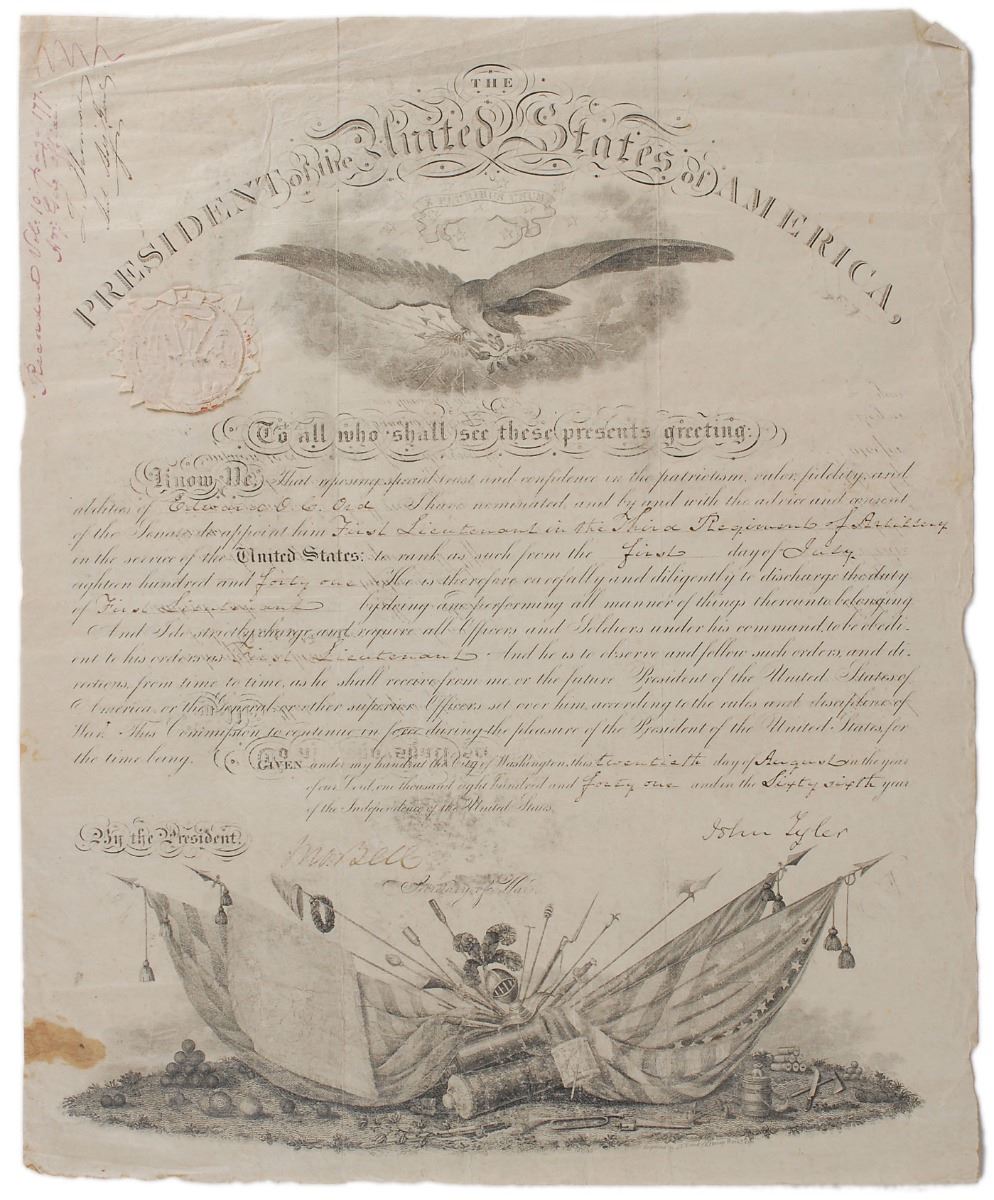 THE
PRESIDENT of the United States of AMERICA,
E PLURIBUS UNUM
To all who shall see these presents greeting:
Know Ye, That reposing special trust and confidence in the patriotism, valor, fidelity, and
abilities of Edward O. C. Ord I have nominated, and by and with the advice and consent
of the Senate, do appoint him First Lieutenant in the Third Regiment of Artillery
in the service of the United States: to rank as such from the first day of July
eighteen hundred and forty one He is therefore carefully and diligently to discharge the duty
of First Lieutenant by doing and performing all manner of things thereunto belonging.
And I do strictly charge, and require all Officers and Soldiers under his command, to be obedi-
ent to his orders as First Lieutenant. And he is to observe and follow such orders, and di-
rections, from time to time, as he shall receive from me, or the future President of the United States of
America, or the General, or other superior Officers set over him, according to the rules and discipline of
War. This Commission to continue in force during the pleasure of the President of the United States, for
the time being. GIVEN under my hand, at the City of Washington, this twentieth day of August in the year
of our Lord, one thousand eight hundred and forty one and in the Sixty sixth year
of the Independence of the United States.
By the President,
John Tyler
Jno Bell
Secretary of War.
Recorded Vol: 10 Page 177.